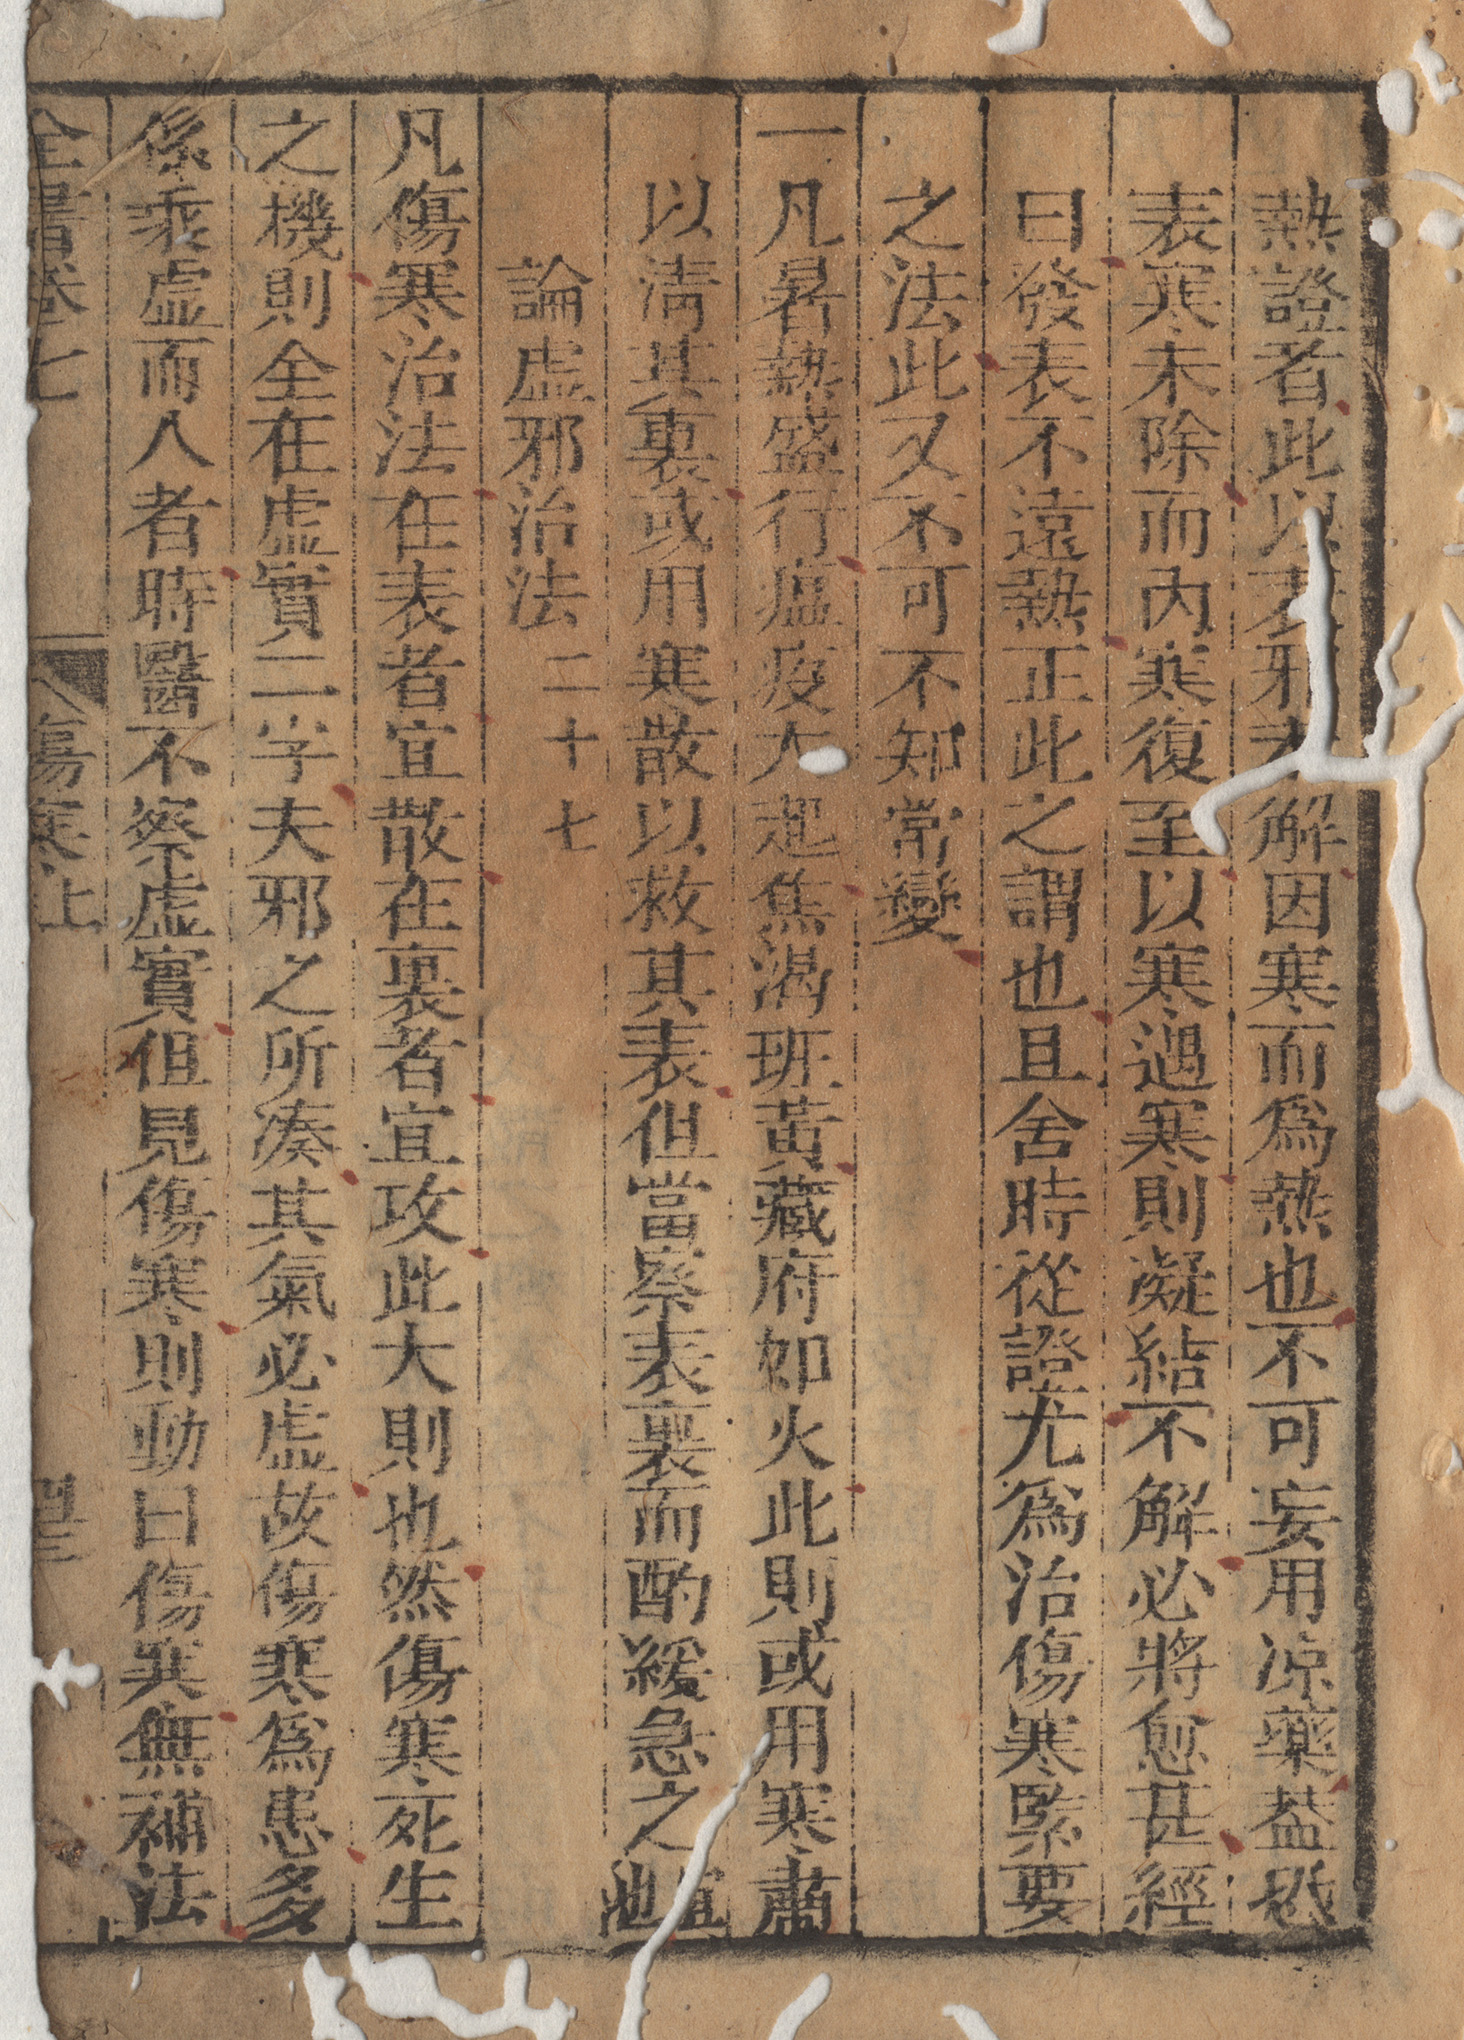 熱證者此以表邪未解因寒而為熱也不可妄用涼藥葢
表寒未除而內寒復至以寒遇寒則凝結不解必將愈甚經
曰發表不遠熱正此之謂也且舍時從證尤為治傷寒緊要
之法此又不可不知常變
一凡暑熱盛行瘟疫大起焦渴班黃藏府如火此則或用寒肅
以清其裏或用寒散以救其表但當察表裏而酌緩急之宜
論虛邪治法二十七
凡傷寒治法在表者宜散在裏者宜攻此大則也然傷寒死生
之機則全在虛實二字夫邪之所凑其氣必虛故傷寒為患多
係乘虛而入者時醫不察虛實但見傷寒則動曰傷寒無補法
全書卷七 傷寒上